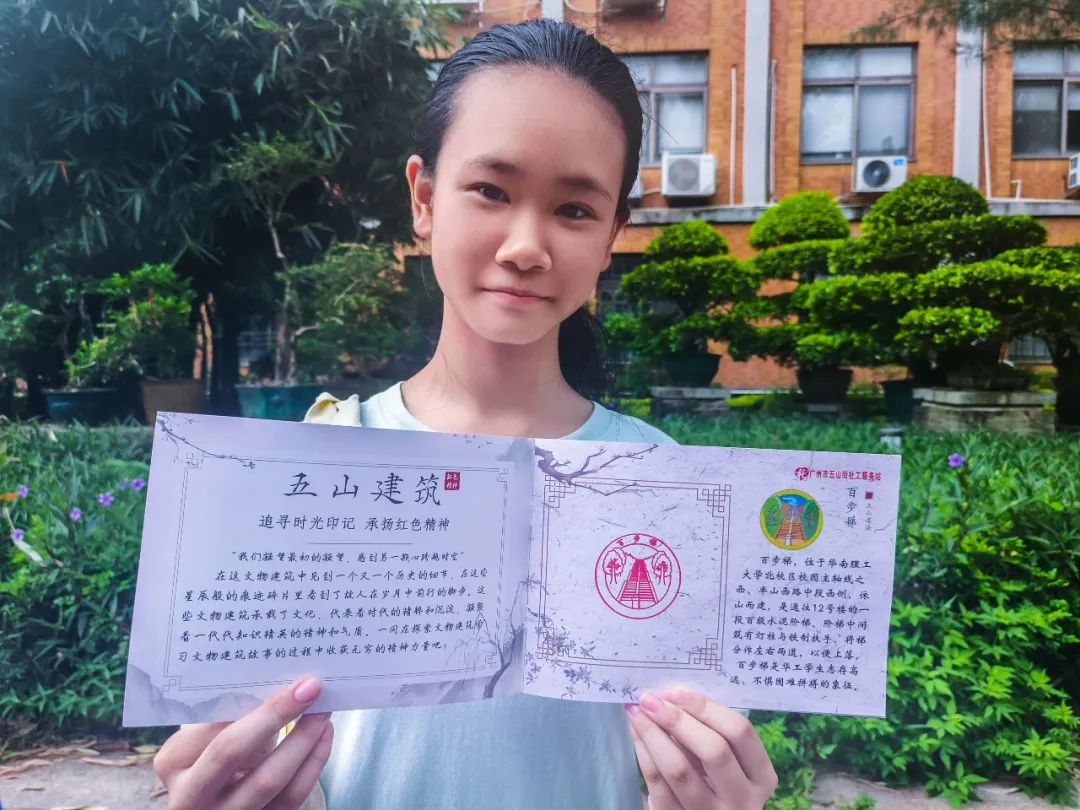 五山建筑
红色
精神
追寻时光印记 承扬红色精神
“我们凝望最初的凝望，感到另一颗心跨越时空”
在这文物建筑中见到一个又一个历史的细节，在这些
星辰般的痕迹碎片里看到了故人在岁月中前行的脚步。这
些文物建筑承载了文化，代表着时代的精粹和沉淀，凝聚
着一代代知识精英的精神和气质。一同在探索文物建筑学
习文物建筑故事的过程中收获无穷的精神力量吧！
百步梯
广州市五山街社工服务站
百步梯
五山建筑
百步梯，位于华南理工
大学北校区校园主轴线之
西、丰山西路中段西侧，依
山而建，是通往12号楼的一
段百级水泥阶梯，阶梯中间
筑有灯柱与铁制扶手，将梯
分作左右两道，以便上落，
百步梯是华工学生志存高
远、不惧困难拼搏的象征。